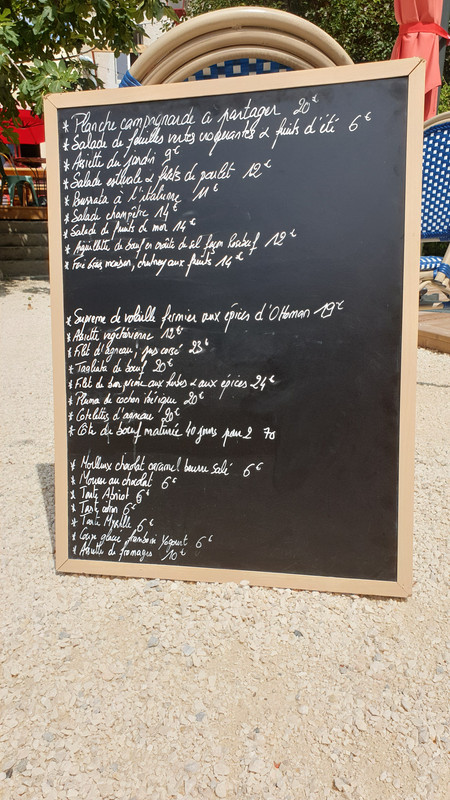 * Planche campagnarde à partager 20€
* Salade de feuilles vertes croquantes & fruits d'été 6€
* Assiette du jardin 9€
* Salade estivale & filets de poulet 12€
* Burrata à l'italienne 11€
* Salade champêtre 14€
* Salade de fruits de mer 14€
* Aiguillette de bœuf en croûte de sel façon Rosbeef 12€
* Foie Gras maison, chutney aux fruits 14€
* Supreme de volaille fermier aux épices d'Ottoman 19€
* Assiette végétarienne 12€
* Filet d'agneau, jus corsé 23€
* Tagliata de bœuf 20€
* Filet de bœuf prime aux herbes & aux épices 24€
* Pluma de cochon ibérique 20€
* Cotelettes d'agneau 20€
* Côte de bœuf maturée 40 jours pour 2 70
* Moelleux chocolat caramel beurre salé 6€
* Mousse au chocolat 6€
* Tarte Abricot 6€
* Tarte citron 6€
* Tarte Myrtille 6€
* Coupe glacée framboise Yogourt 6€
* Assiette de fromages 10€